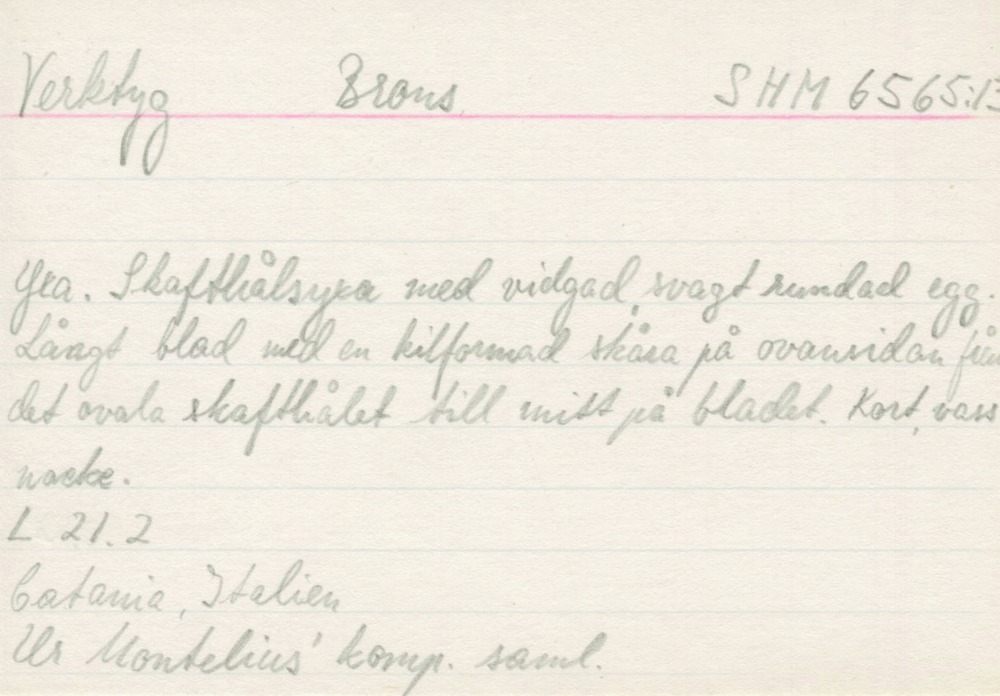 Verktyg Brons SHM 6565:13
Yxa. Skafthålsyxa med vidgad, svagt rundad egg.
Långt blad med en kilformad skåra på ovansidan från
det ovala skafthålet till mitt på bladet. Kort, vass
nacke.
L 21.2
Catania, Italien
Ur Montelius' komp. saml.